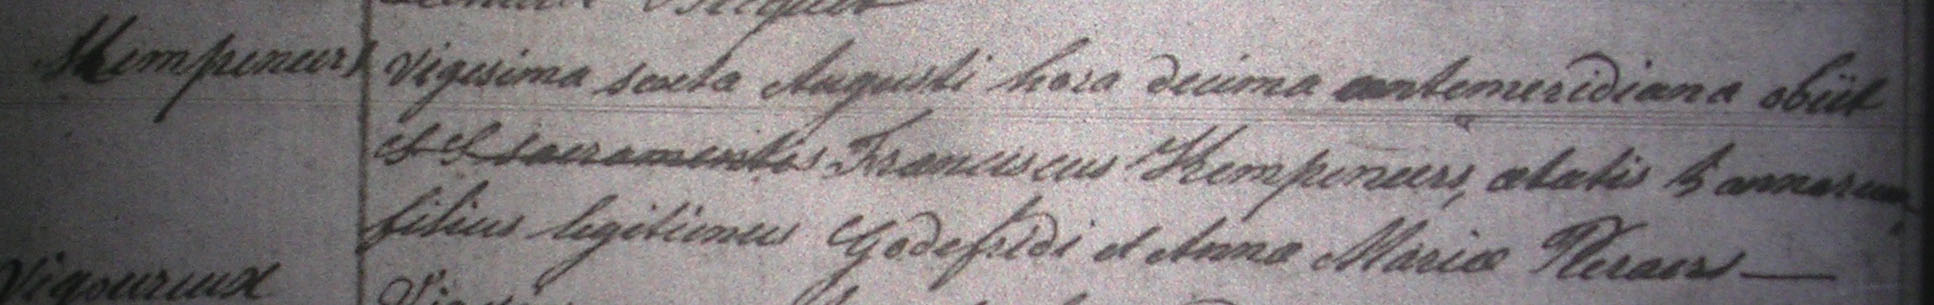 Kempeneers
Vigesima sexta Augusti hora decima antemeridiana obiit
Sacramentis Franciscus Kempeneers, ætatis 5 annorum
filius legitimus Godefridi et Annæ Mariæ
Vigoureux